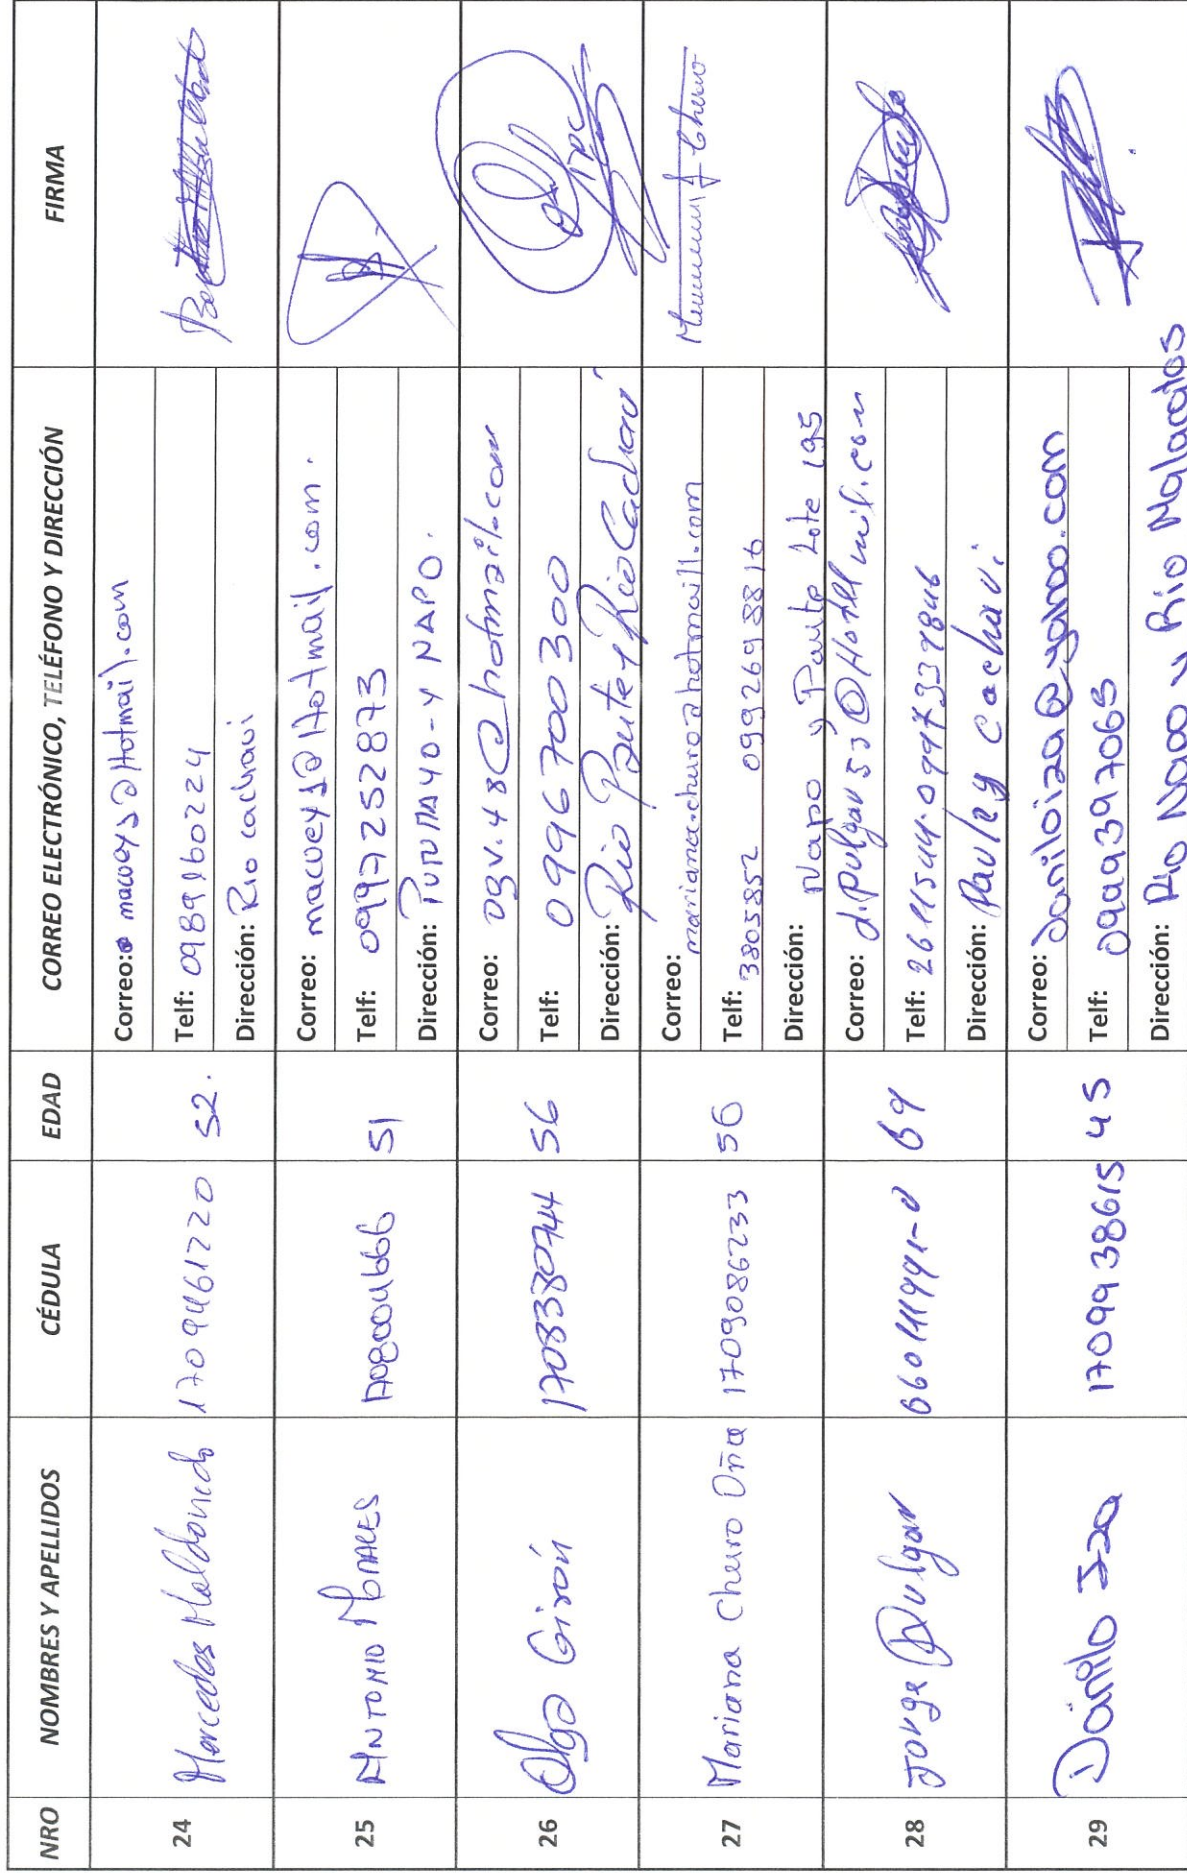 NRO NOMBRES Y APELLIDOS CÉDULA EDAD CORREO ELECTRÓNICO, TELÉFONO Y DIRECCIÓN FIRMA
24 Mercedes Maldonado 1709461220 52.
Correo: macweys@Hotmail.com
Telf: 0989160224
Dirección: Rio cachavi
25 ANTONIO MORALES 1708004666 51
Correo: macweys@Hotmail.com.
Telf: 0997252873
Dirección: PUTUMAYO-Y NAPO.
26 Olga Girón 1708380744 56
Correo: ogv.48@hotmail.com
Telf: 0996700300
Dirección: Rio Paute y Rio Cachavi
27 Mariana Churo Oña 1709086233 56
Correo: mariana.churo@hotmaill.com
Telf: 3805852 0992698816
Dirección: Napo y Paute Lote 195
28 Jorge Pulgar 69
Correo:
Telf:
Dirección: Paute y Cachavi
29 Danilo Iza 1709938615 45
Correo: daniloiza@yahoo.com
Telf: 0999397065
Dirección: Rio Napo y Rio Malacatos